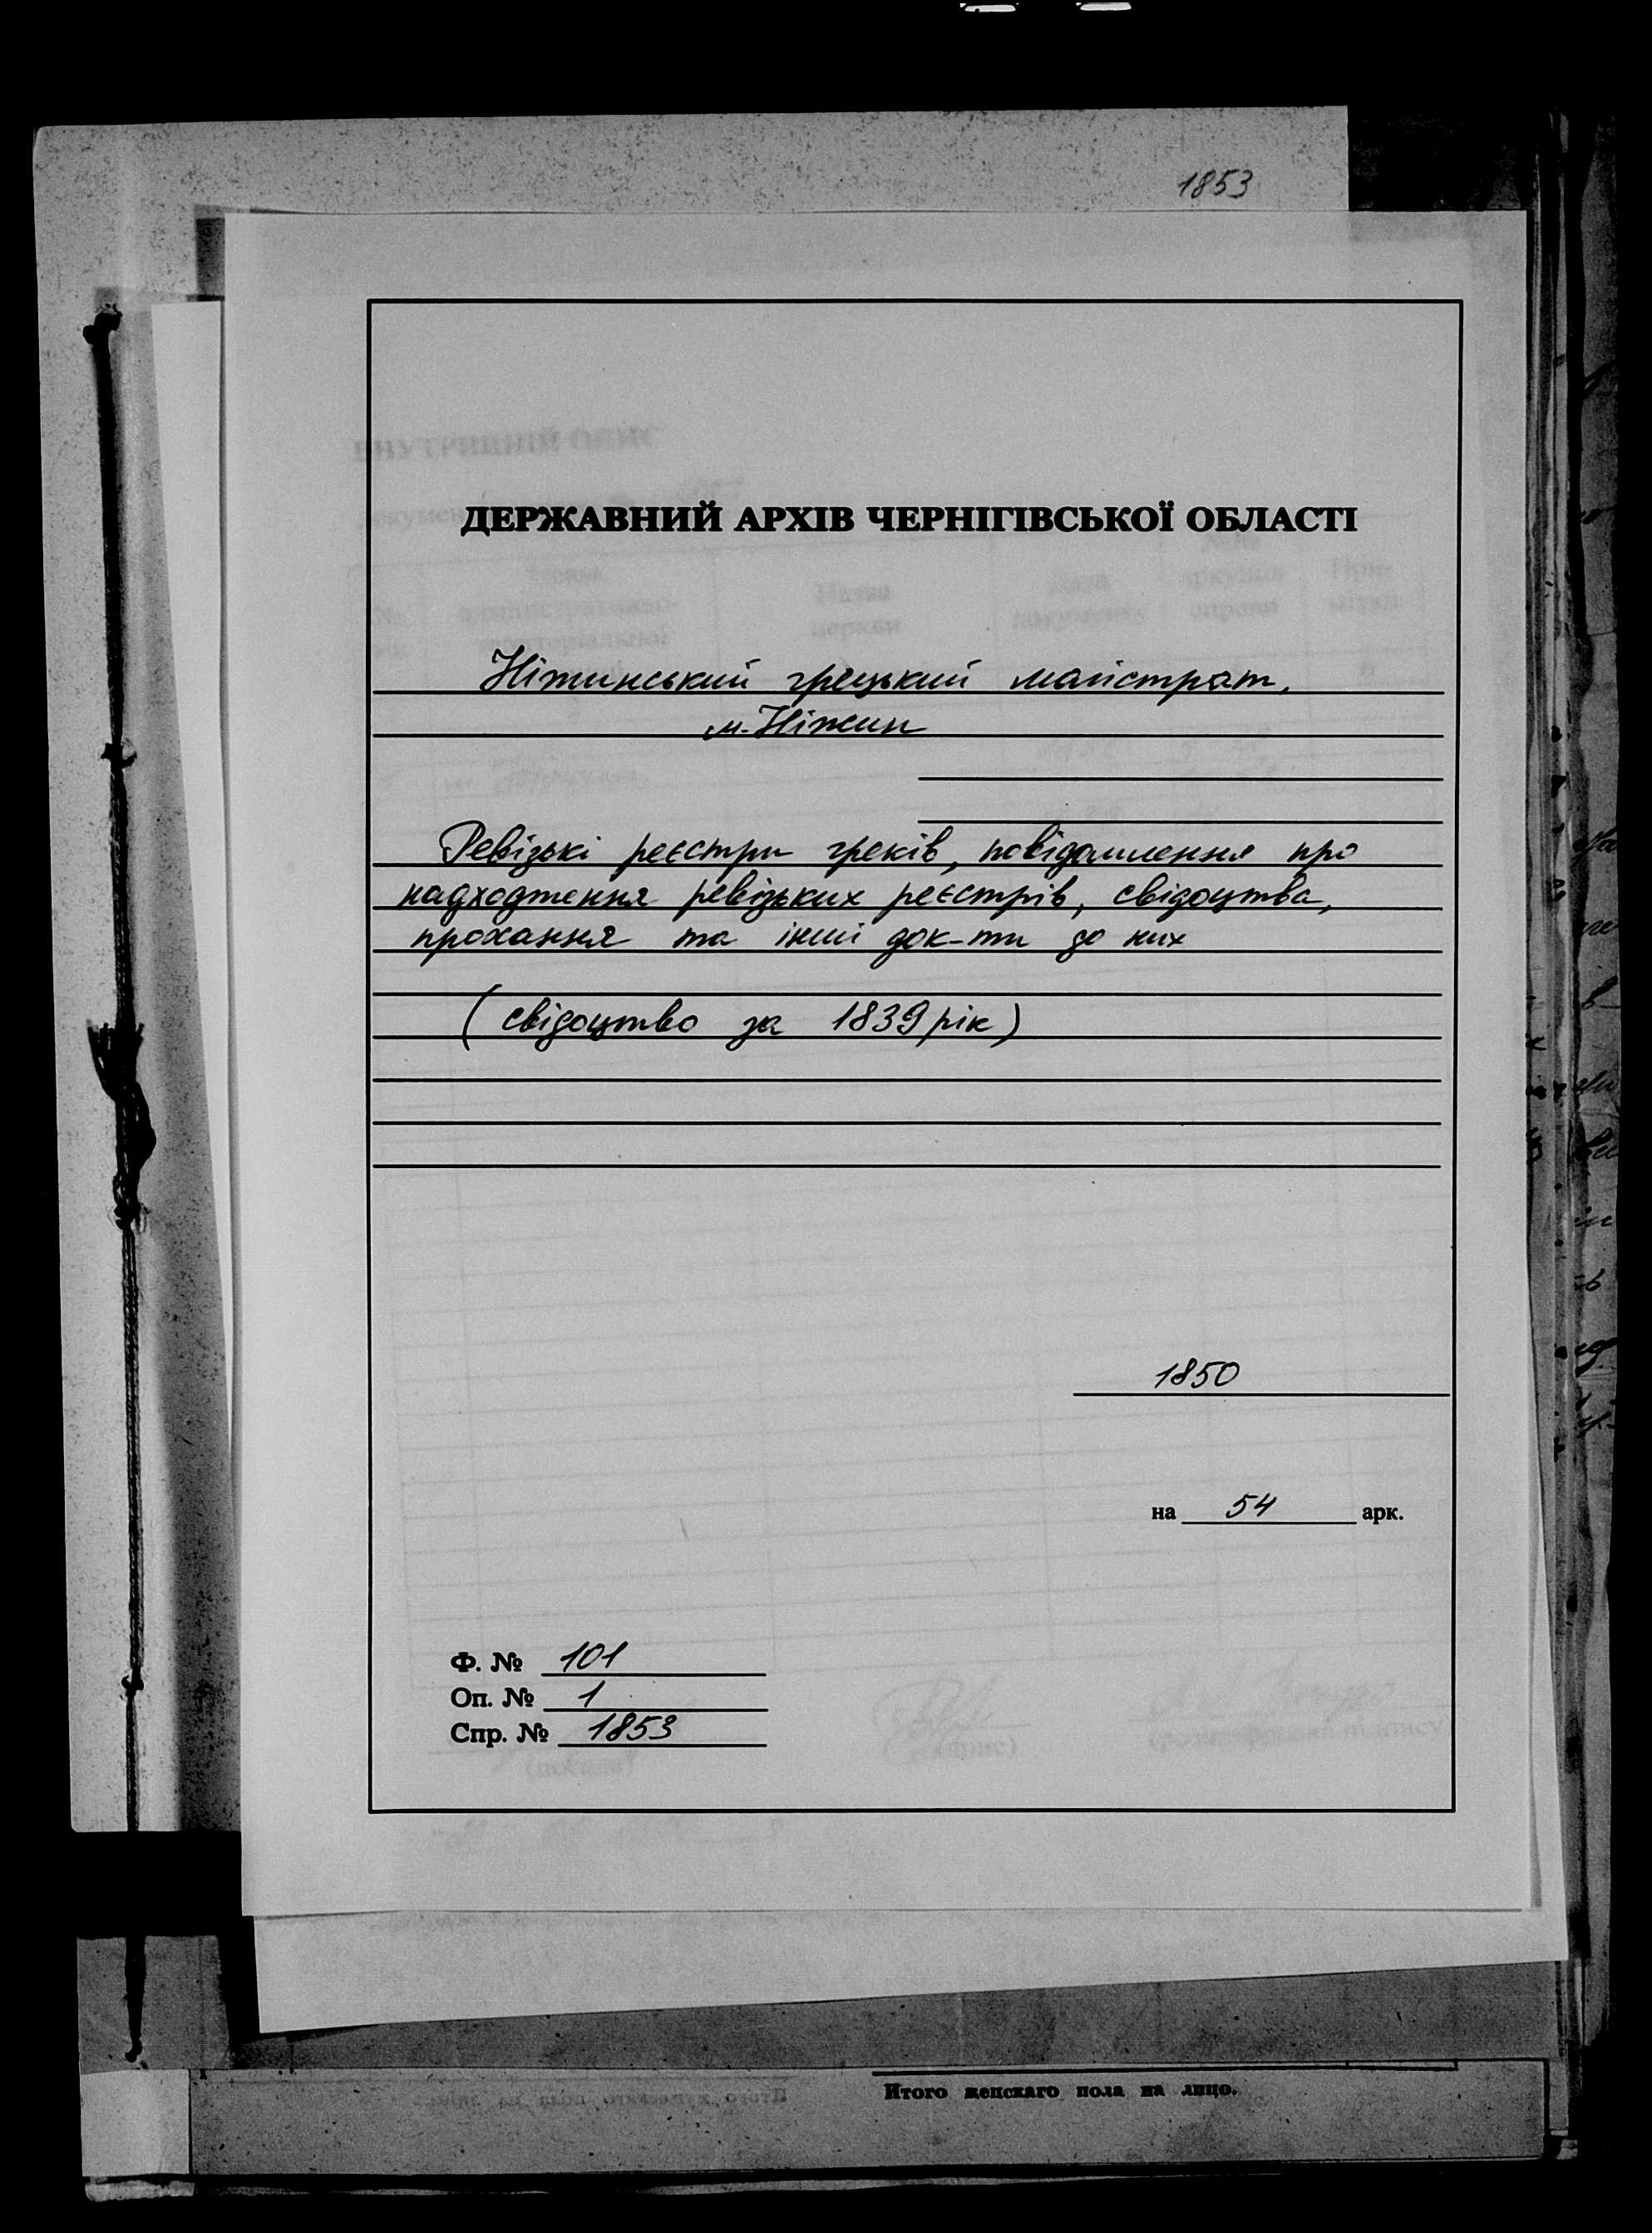 1853
ДЕРЖАВНИЙ АРХІВ ЧЕРНІГІВСЬКОЇ ОБЛАСТІ
Ніжинський грецький магістрат,
м. Ніжин
Ревізькі реєстри греків, повідомлення про
надходження ревізьких реєстрів, свідоцтва,
прохання та інші док-ти до них
(свідоцтво за 1839 рік)
1850
на 54 арк.
Ф. № 101
Оп. № 1
Спр. № 1853
Итого женскаго пола на лицо.